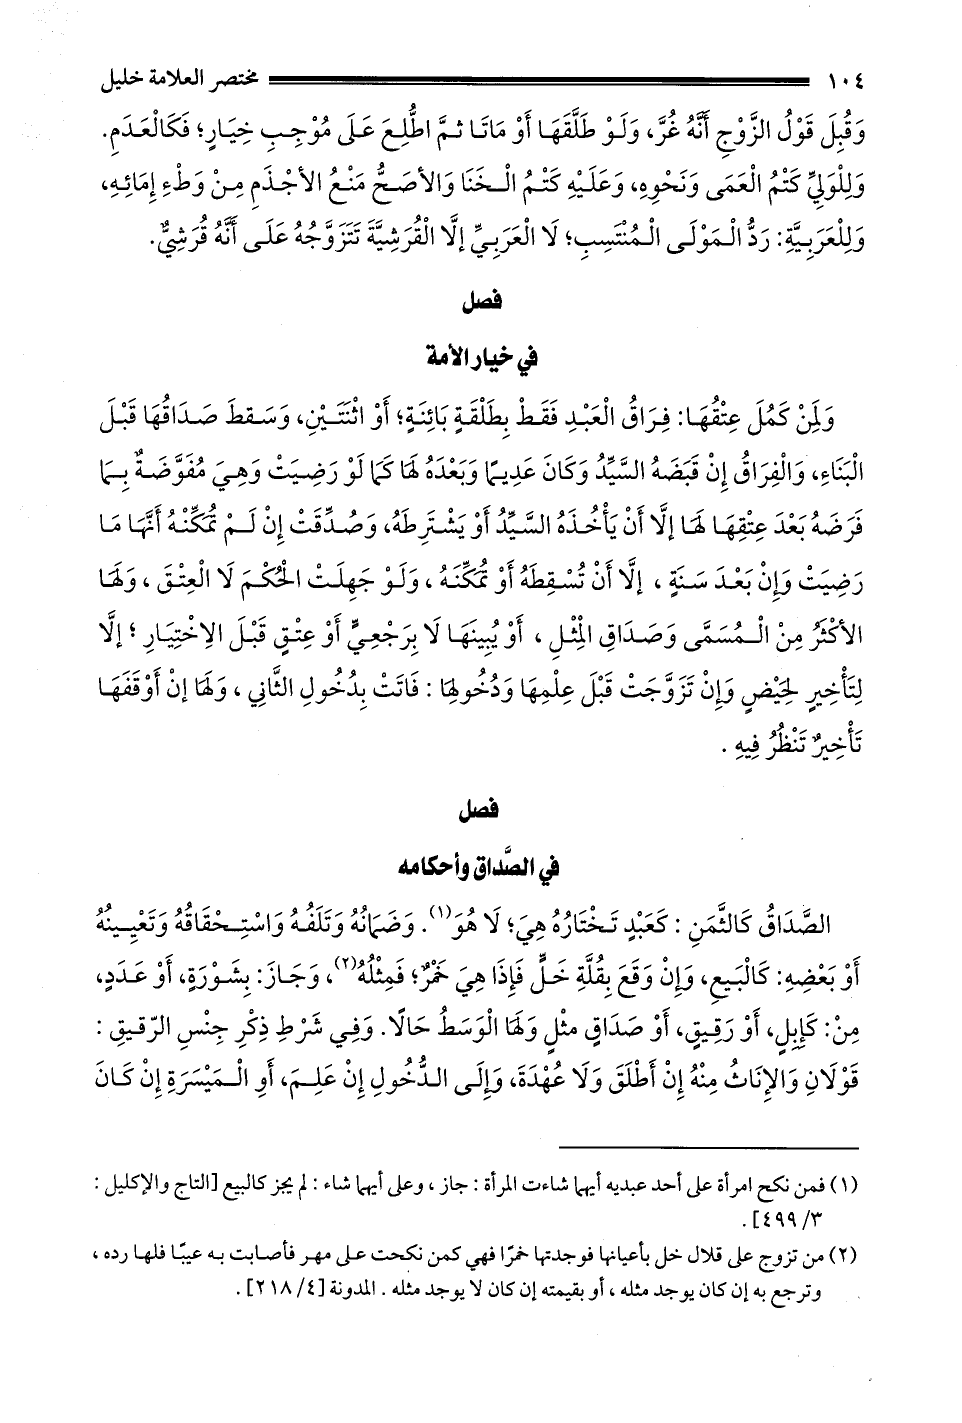 ١٠٤ مختصر العلامة خليل
وَقُبِلَ قَوْلُ الزَّوْجِ أَنَّهُ غُرَّ، وَلَوْ طَلَّقَهَا أَوْ مَاتَا ثمَّ اطُّلِعَ عَلَى مُوْجِبِ خِيَارٍ؛ فَكَالْعَدَمِ.
وَلِلْوَلِيِّ كَتْمُ الْعَمَى وَنَحْوِهِ، وَعَلَيْهِ كَتْمُ الْخَنَا وَالأصَحُّ مَنْعُ الأجْذَمِ مِنْ وَطْءِ إِمَائِهِ،
وَلِلْعَرَبِيَّةِ: رَدُّ الْمَوْلَى الْمُنْتَسِبِ؛ لَا الْعَرَبِيِّ إِلَّا الْقُرَشِيَّةَ تَتَزَوَّجُهُ عَلَى أَنَّهُ قُرَشِيٌّ.
فصل
في خيار الأمة
وَلِمَنْ كَمُلَ عِتْقُهَا: فِرَاقُ الْعَبْدِ فَقَطْ بِطَلْقَةٍ بَائِنَةٍ؛ أَوْ اثْنَتَيْنِ، وَسَقطَ صَدَاقُهَا قَبْلَ
الْبَنَاءِ، وَالْفِرَاقُ إِنْ قَبَضَهُ السَّيِّدُ وَكَانَ عَدِيمًا وَبَعْدَهُ لهَا كَمَا لَوْ رَضِيَتْ وَهِيَ مُفَوَّضَةٌ بِمَا
فَرَضَهُ بَعْدَ عِتْقِهَا لهَا إلَّا أَنْ يَأْخُذَهُ السَّيِّدُ أَوْ يَشْتَرِطَهُ، وَصُدِّقَتْ إِنْ لَمْ تُمَكِّنْهُ أَنَّهَا مَا
رَضِيَتْ وَإِنْ بَعْدَ سَنَةٍ ، إِلَّا أَنْ تُسْقِطَهُ أَوْ تُمَكِّنَهُ ، وَلَوْ جَهِلَتْ الحُكْمَ لَا الْعِتْقَ ، وَلَهَا
الأَكْثَرُ مِنْ الْمُسَمَّى وَصَدَاقِ المِثْلِ ، أَوْ يُبِينَهَا لَا بِرَجْعِيٍّ أَوْ عِتْقٍ قَبْلَ الِاخْتِيَارِ ؛ إلَّا
لِتَأْخِيرٍ لحَيْضٍ وَإِنْ تَزَوَّجَتْ قَبْلَ عِلْمِهَا وَدُخُولِهَا : فَاتَتْ بِدُخُولِ الثَّانِي ، وَلَهَا إنْ أَوْقَفَهَا
تَأْخِيرٌ تَنْظُرُ فِيهِ .
فصل
في الصَّداق وأحكامه
الصَّدَاقُ كَالثَّمَنِ : كَعَبْدٍ تَخْتَارُهُ هِيَ؛ لَا هُوَ(١). وَضَمَانُهُ وَتَلَفُهُ وَاسْتِحْقَاقُهُ وَتَعْيِيبُهُ
أَوْ بَعْضِهِ: كَالْبَيعِ، وَإِنْ وَقَعَ بِقُلَّةِ خَلٍّ فَإِذَا هِيَ خَمْرٌ؛ فَمِثْلُهُ(٢)، وَجَازَ: بِشَوْرَةٍ، أَوْ عَدَدٍ،
مِنْ: كَإِبِلٍ، أَوْ رَقِيقٍ، أَوْ صَدَاقِ مثْلٍ وَلهَا الْوَسَطُ حَالًا. وَفِي شَرْطِ ذِكْرِ جِنْسِ الرّقيقِ :
قَوْلَانِ وَالإِنَاثُ مِنْهُ إِنْ أَطْلَقَ وَلَا عُهْدَةَ، وَإِلَى الدُّخُولِ إِنْ عَلِمَ، أَوِ الْمَيْسَرَةِ إِنْ كَانَ
(١) فمن نكح امرأة على أحد عبديه أيهما شاءت المرأة : جاز ، وعلى أيهما شاء : لم يجز كالبيع [التاج والإكليل :
٣/ ٤٩٩] .
(٢) من تزوج على قلال خل بأعيانها فوجدتها خمرًا فهي كمن نكحت على مهر فأصابت به عيبًا فلها رده ،
وترجع به إن كان يوجد مثله ، أو بقيمته إن كان لا يوجد مثله . المدونة [٤/ ٢١٨] .